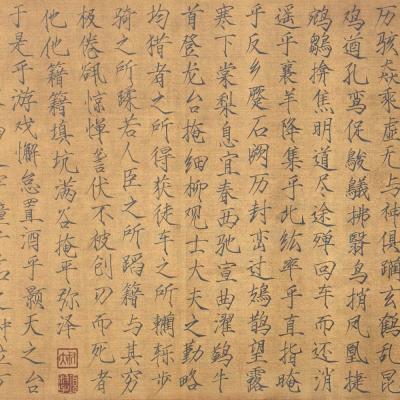 历骇焱乘虚无与神俱躏玄鹤乱昆
鸡遒孔鸾促鵔鸃拂翳鸟捎凤凰捷
鹓鶵揜焦明道尽途殚回车而还消
遥乎襄羊降集乎北纮率乎直指晻
乎反乡蹷石阙历封峦过鳷鹊望露
寒下棠梨息宜春西驰宣曲濯鹢牛
首登龙台掩细柳观士大夫之勤略
均猎者之所得获徒车之所轥轹步
骑之所蹂若人臣之所蹈籍与其穷
极倦谻惊惮詟伏不被创刃而死者
他他籍籍填坑满谷掩平弥泽
于是乎游戏懈怠置酒乎颢天之台